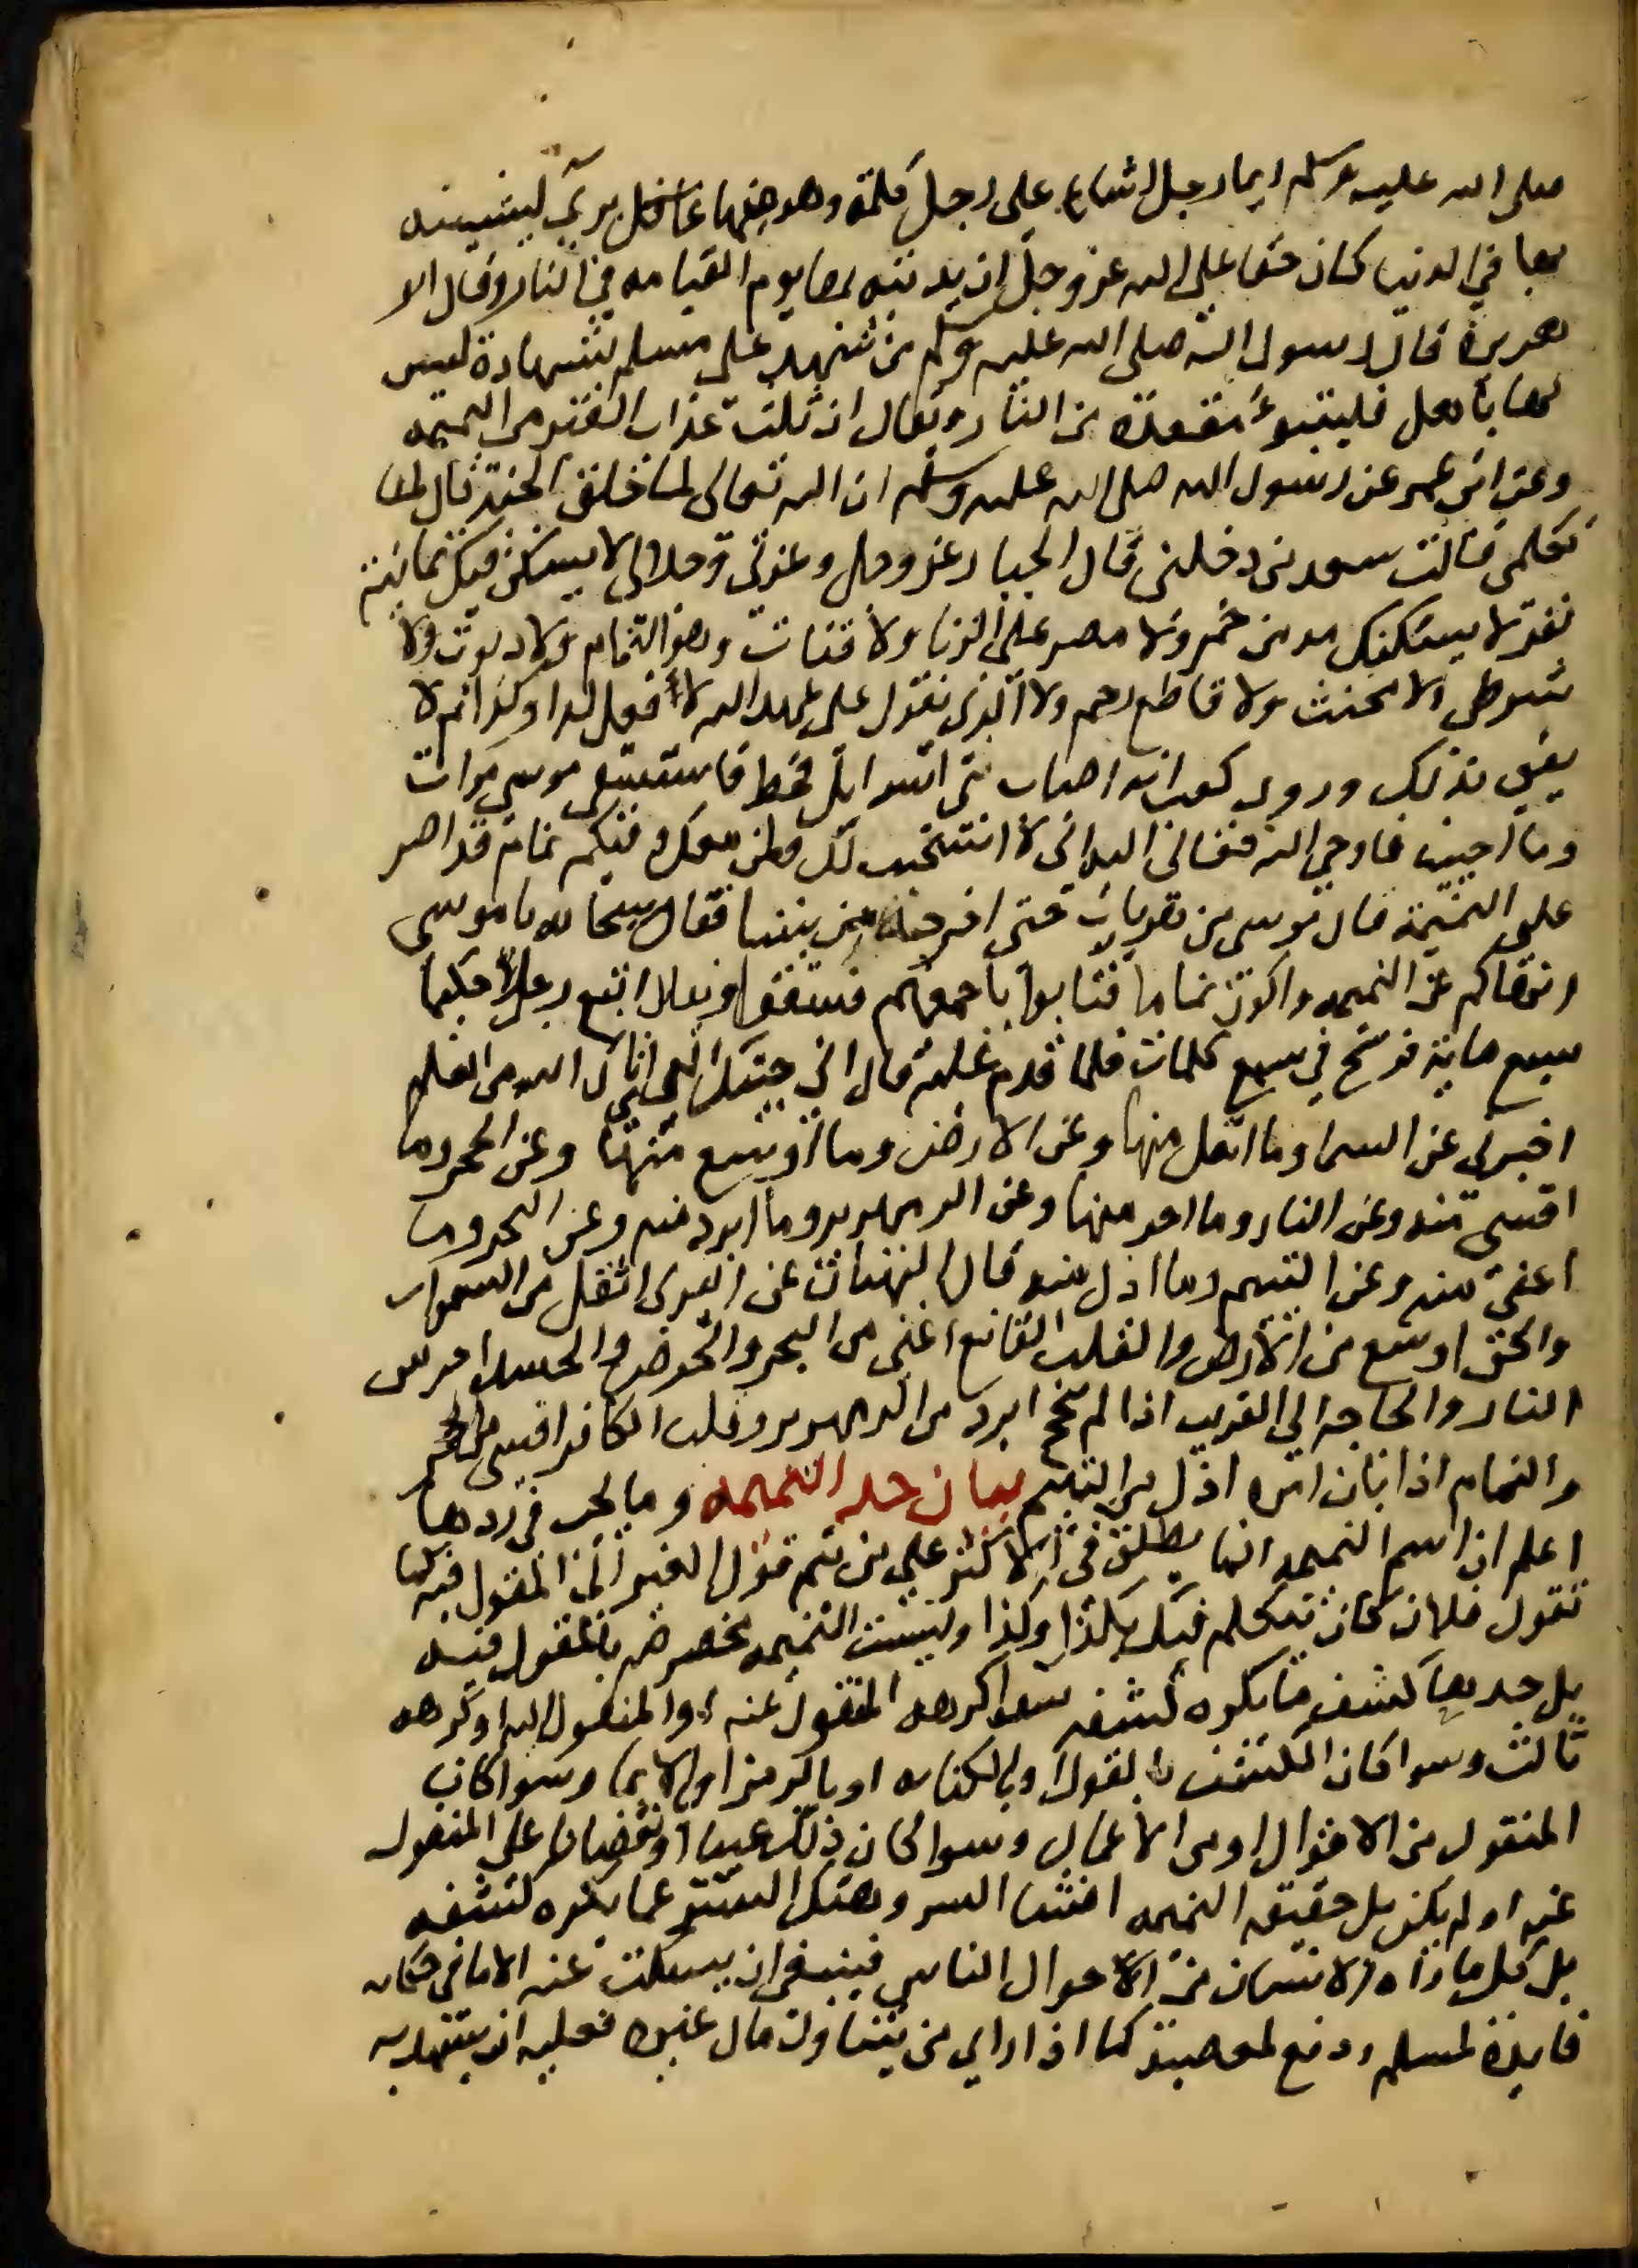 صلى الله عليه وسلم ايما رجل اشاع على رجل كلمة وهو منها برئ ليشينه
بها في الدنيا كان حقا على الله عز وجل ان يدينه بها يوم القيامه في النار وقال ابو
هريرة قال رسول الله صلى الله عليه وسلم من شهد على مسلم بشهادة ليس
لها باهل فليتبوء مقعده من النار ويقال ان ثلث عذاب القبر من النميمه
وعن ابن عمر عن رسول الله صلى الله عليه وسلم ان الله تعالى لما خلق الجنة قال لها
تكلمي فقالت سعد من دخلني قال الجبار عز وجل وعزتي وجلالي لا يسكن فيك ثمانية
نفر لا يسكنك مدمن خمر ولا مصر على الزنا ولا قتات وهو النمام ولا ديوث ولا
شرطي ولا مخنث ولا قاطع رحم ولا الذي يقول على عهد الله لا فعل كذا وكذا ثم لا
يفي بذلك وروى كعب انه اصاب بني اسرايل قحط فاستسقى موسى مرات
وما اجيب فاوحى الله تعالى اليه اني لا استجيب لك ولمن معك وفيكم نمام قد اصر
على النميمة قال موسى من هو يارب حتى اخرجه من بيننا فقال سبحانه يا موسى
انهاكم عن النميمه واكون نماما فتابوا باجمعهم فسقوا ويقال اتبع رجلا حكيما
سبع ماية فرسخ في سبع كلمات فلما قدم عليه قال اني جيتك للذي اتاك الله من العلم
اخبرني عن السما وما اثقل منها وعن الارض وما اوسع منها وعن الحجر وما
اقسى منه وعن النار وما احر منها وعن الزمهرير وما ابرد منه وعن البحر وما
اغنى منه وعن اليتيم وما اذل منه قال البهتان عن البري اثقل من السموات
والحق اوسع من الارض والقلب القانع اغنى من البحر والحرص والحسد احر من
النار والحاجة الى القريب اذا لم تنجح ابرد من الزمهرير وقلب الكافر اقسى من الحجر
والنمام اذا بان امره اذل من اليتيم بيان حد النميمه وما يجب في ردها
اعلم ان اسم النميمه انما يطلق في الاكثر على من نم قول الغير الى المقول فيه كما
تقول فلان كان يتكلم فيك بكذا وكذا وليست النميمه مخصوصة بالمقول فيه
بل حدها كشف ما يكره كشفه سوا كرهه المنقول عنه او المنقول اليه او كرهه
ثالث وسوا كان الكشف بالقول او بالكتابه او بالرمز او بالايما وسوا كان
المنقول من الاقوال او من الاعمال وسوا كان ذلك عيبا او نقصانا على المنقول
عنه او لم يكن بل حقيقه النميمه افشا السر وهتك الستر عما يكره كشفه
بل كل ما راه الانسان من الاحوال الناس فينبغي ان يسكت عنه الا ما في حكايه
فايدة لمسلم او دفع لمعصية كما اذا راى من يتناول مال غيره فعليه ان يشهد به